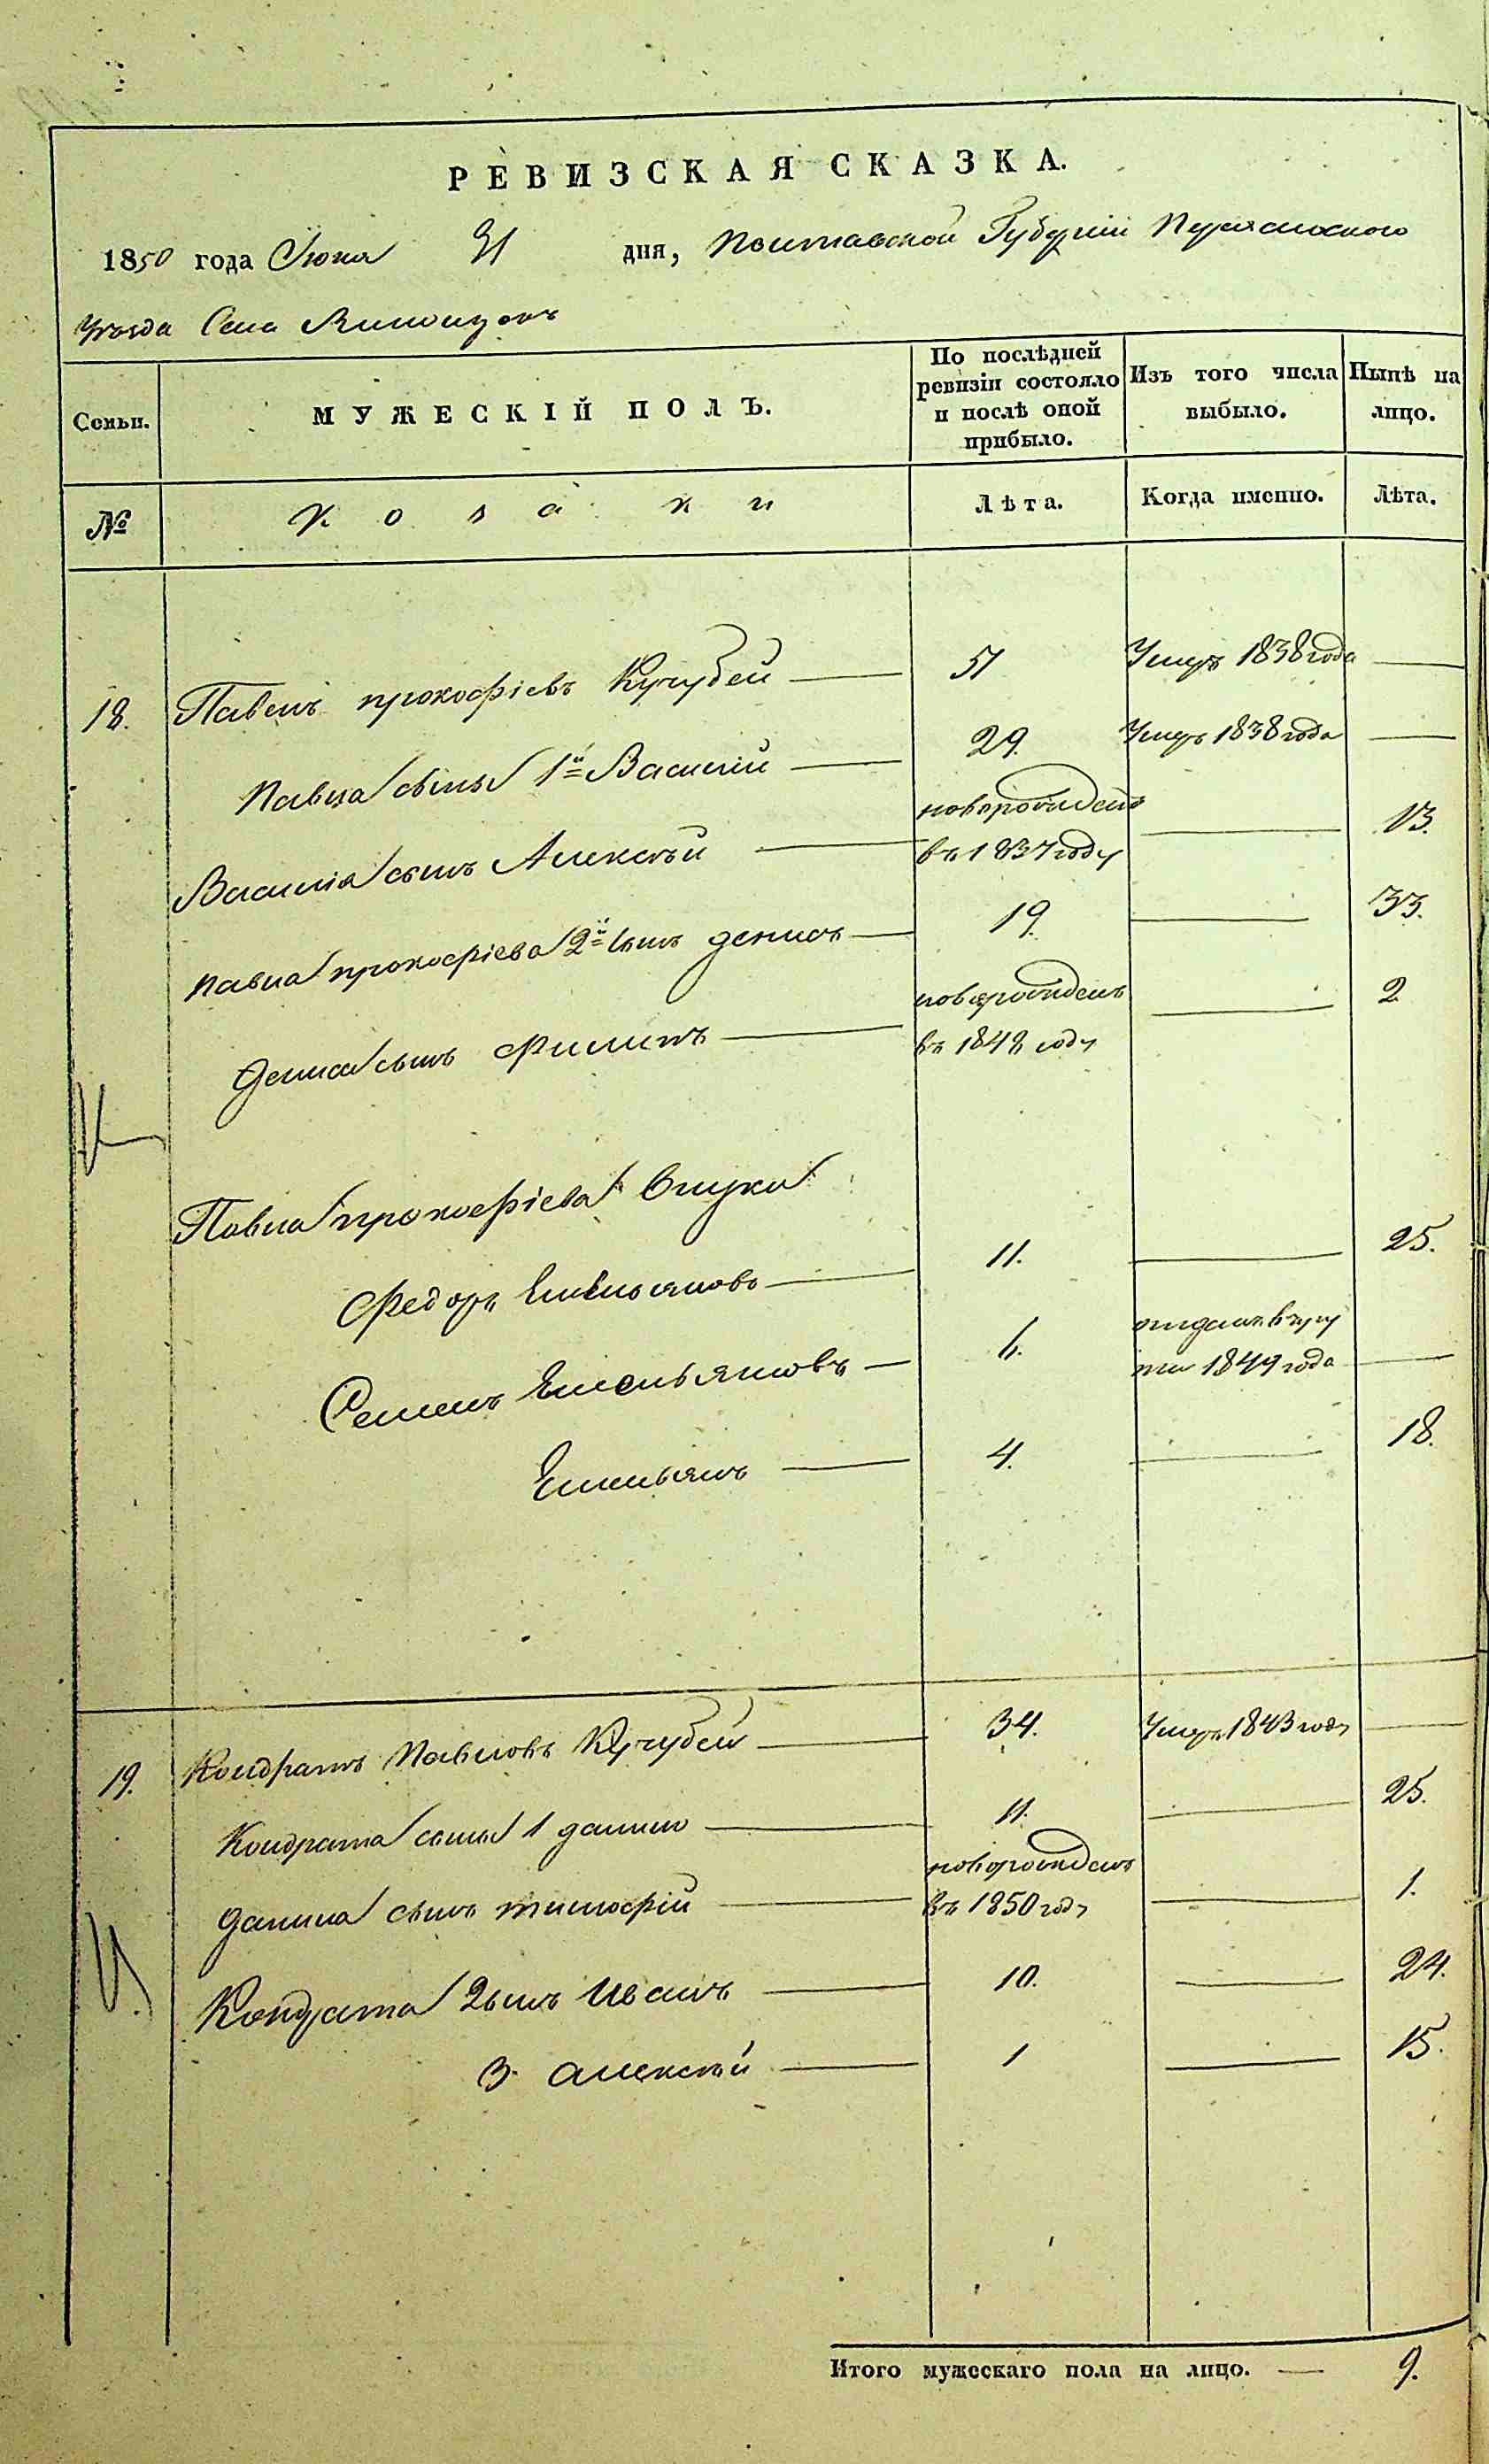 РЕВИЗСКАЯ СКАЗКА.
1850 года Июня 21 дня, Полтавской Губерніи Переяславского
Уѣзда Села
Семьи. МУЖЕСКІЙ ПОЛЪ. По послѣдней ревизіи состояло и послѣ оной прибыло. Изъ того числа выбыло. Нынѣ на лицо.
№ Козаки Лѣта. Когда именно. Лѣта.
18. Павелъ прокофіевъ Кучубей — 51 Умеръ 1838 года —
Павла сыны 1й Василій — 29. Умеръ 1838 года —
Василія сынъ Алексѣй — новорожденъ в 1837 году — 13.
павла прокофіева 2й сынъ денисъ — 19. — 33.
Дениса сынъ Филипъ — новорожденъ въ 1848 году — 2
Павла прокофіева внуки
Федоръ Емельяновъ — 11. — 25.
Семенъ Емельяновъ — 6. отданъ в рекруты 1849 года —
Емельянъ — 4. — 18.
19. Кондратъ Павловъ Кучубей — 34. Умеръ 1843 году —
Кондрата сыны 1 данило — 11. — 25.
данила сынъ тимофій — новорожденъ въ 1850 году — 1.
Кондрата 2 сынъ Иванъ — 10. — 24.
3. алексѣй — 1 — 15.
Итого мужескаго пола на лицо. — 9.